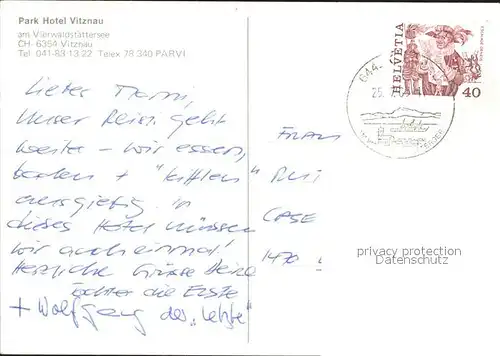 Park Hotel Vitznau
am Vierwaldstättersee
CH-6354 Vitznau
Tel 041-83 13 22 Telex 78 340 PARVI
HELVETIA
40
644
25.
Liebes
unser Reise geht
weiter - wir essen,
baden +
ausgiebig. In
dieses Hotel müssen
wir auch einmal!
Herzliche Grüsse Deine
Tochter die Erste
+ Wolfgang der "Letzte"
CASE
1470
privacy protection
Datenschutz